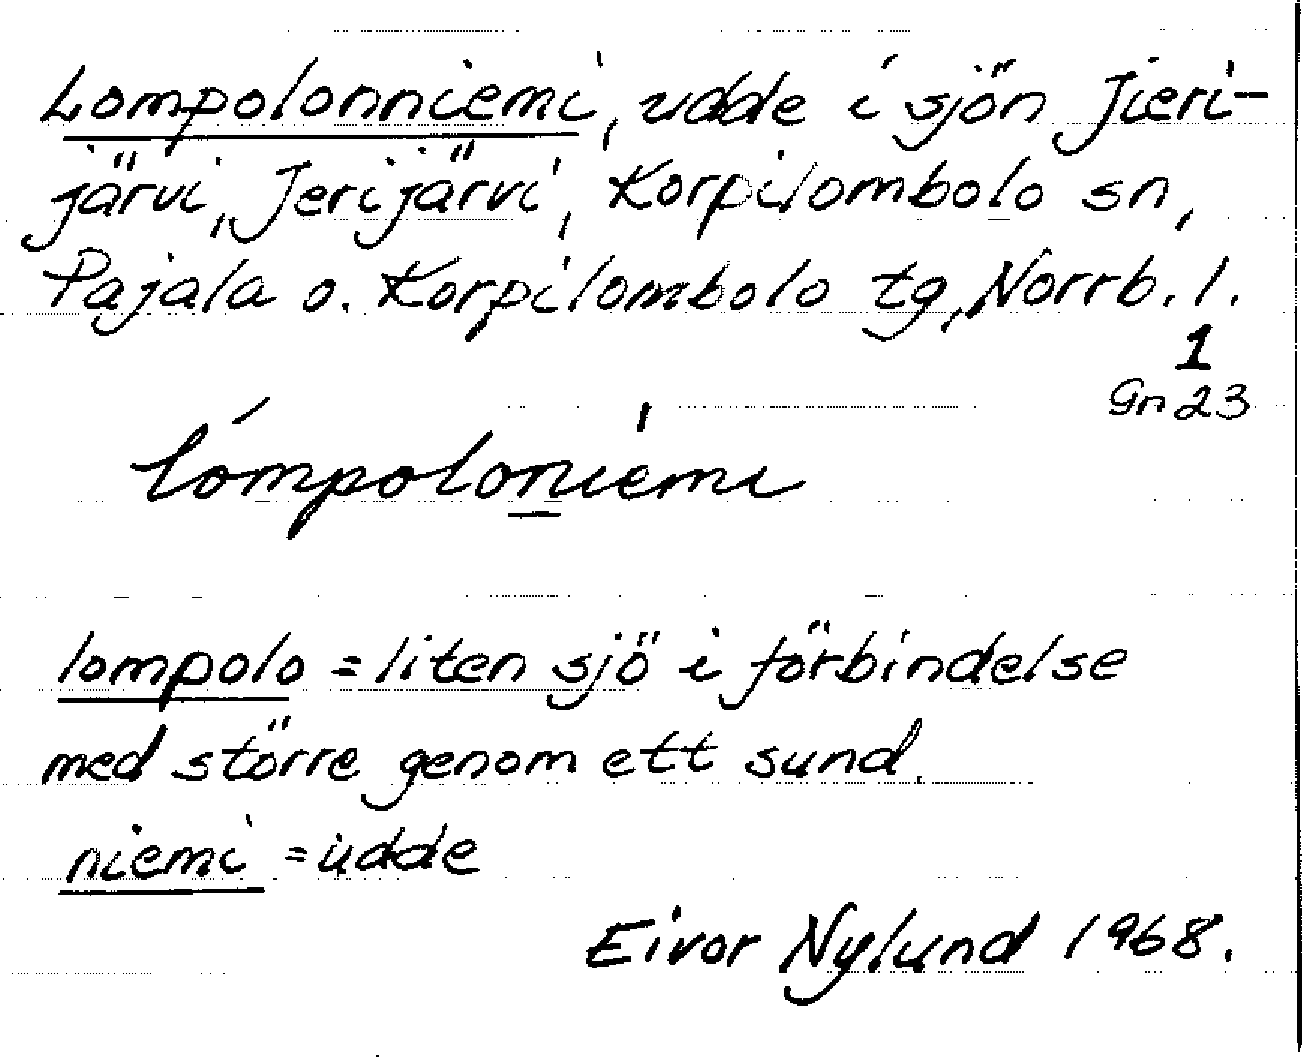 Lompolonniemi, udde i sjön Jieri-
järvi, Jerijärvi, Korpilombolo sn,
Pajala o. Korpilombolo tg, Norrb. l.
1
Gn 23
lómpoloniemi
lompolo = liten sjö i förbindelse
med större genom ett sund.
niemi = udde
Eivor Nylund 1968.